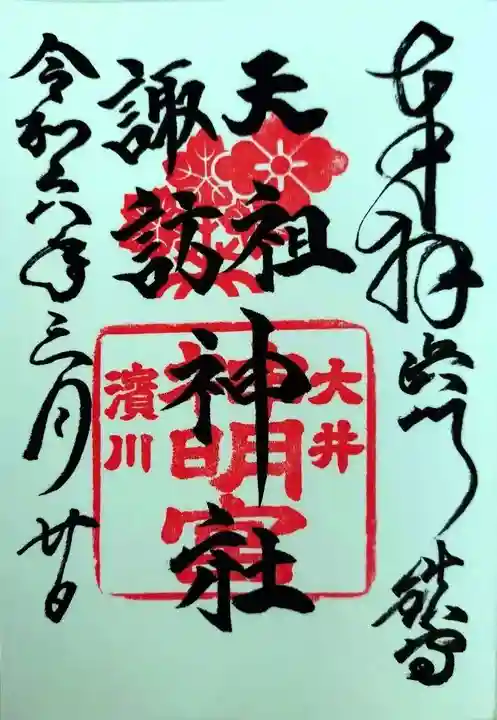 奉拝
天祖
諏訪
神社
令和六年三月廿日
大井
濱川
神明宮